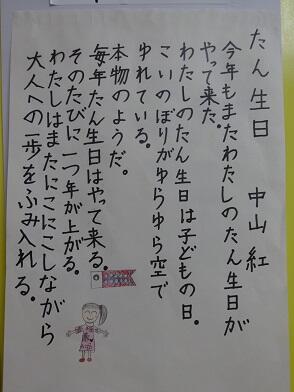 たん生日　中山 紅
今年もまたわたしのたん生日が
やって来た。
わたしのたん生日は子どもの日。
こいのぼりがゆらゆら空で
ゆれている。
本物のようだ。
毎年たん生日はやって来る。
そのたびに一つ年が上がる。
わたしはまたにこにこしながら
大人への一歩をふみ入れる。